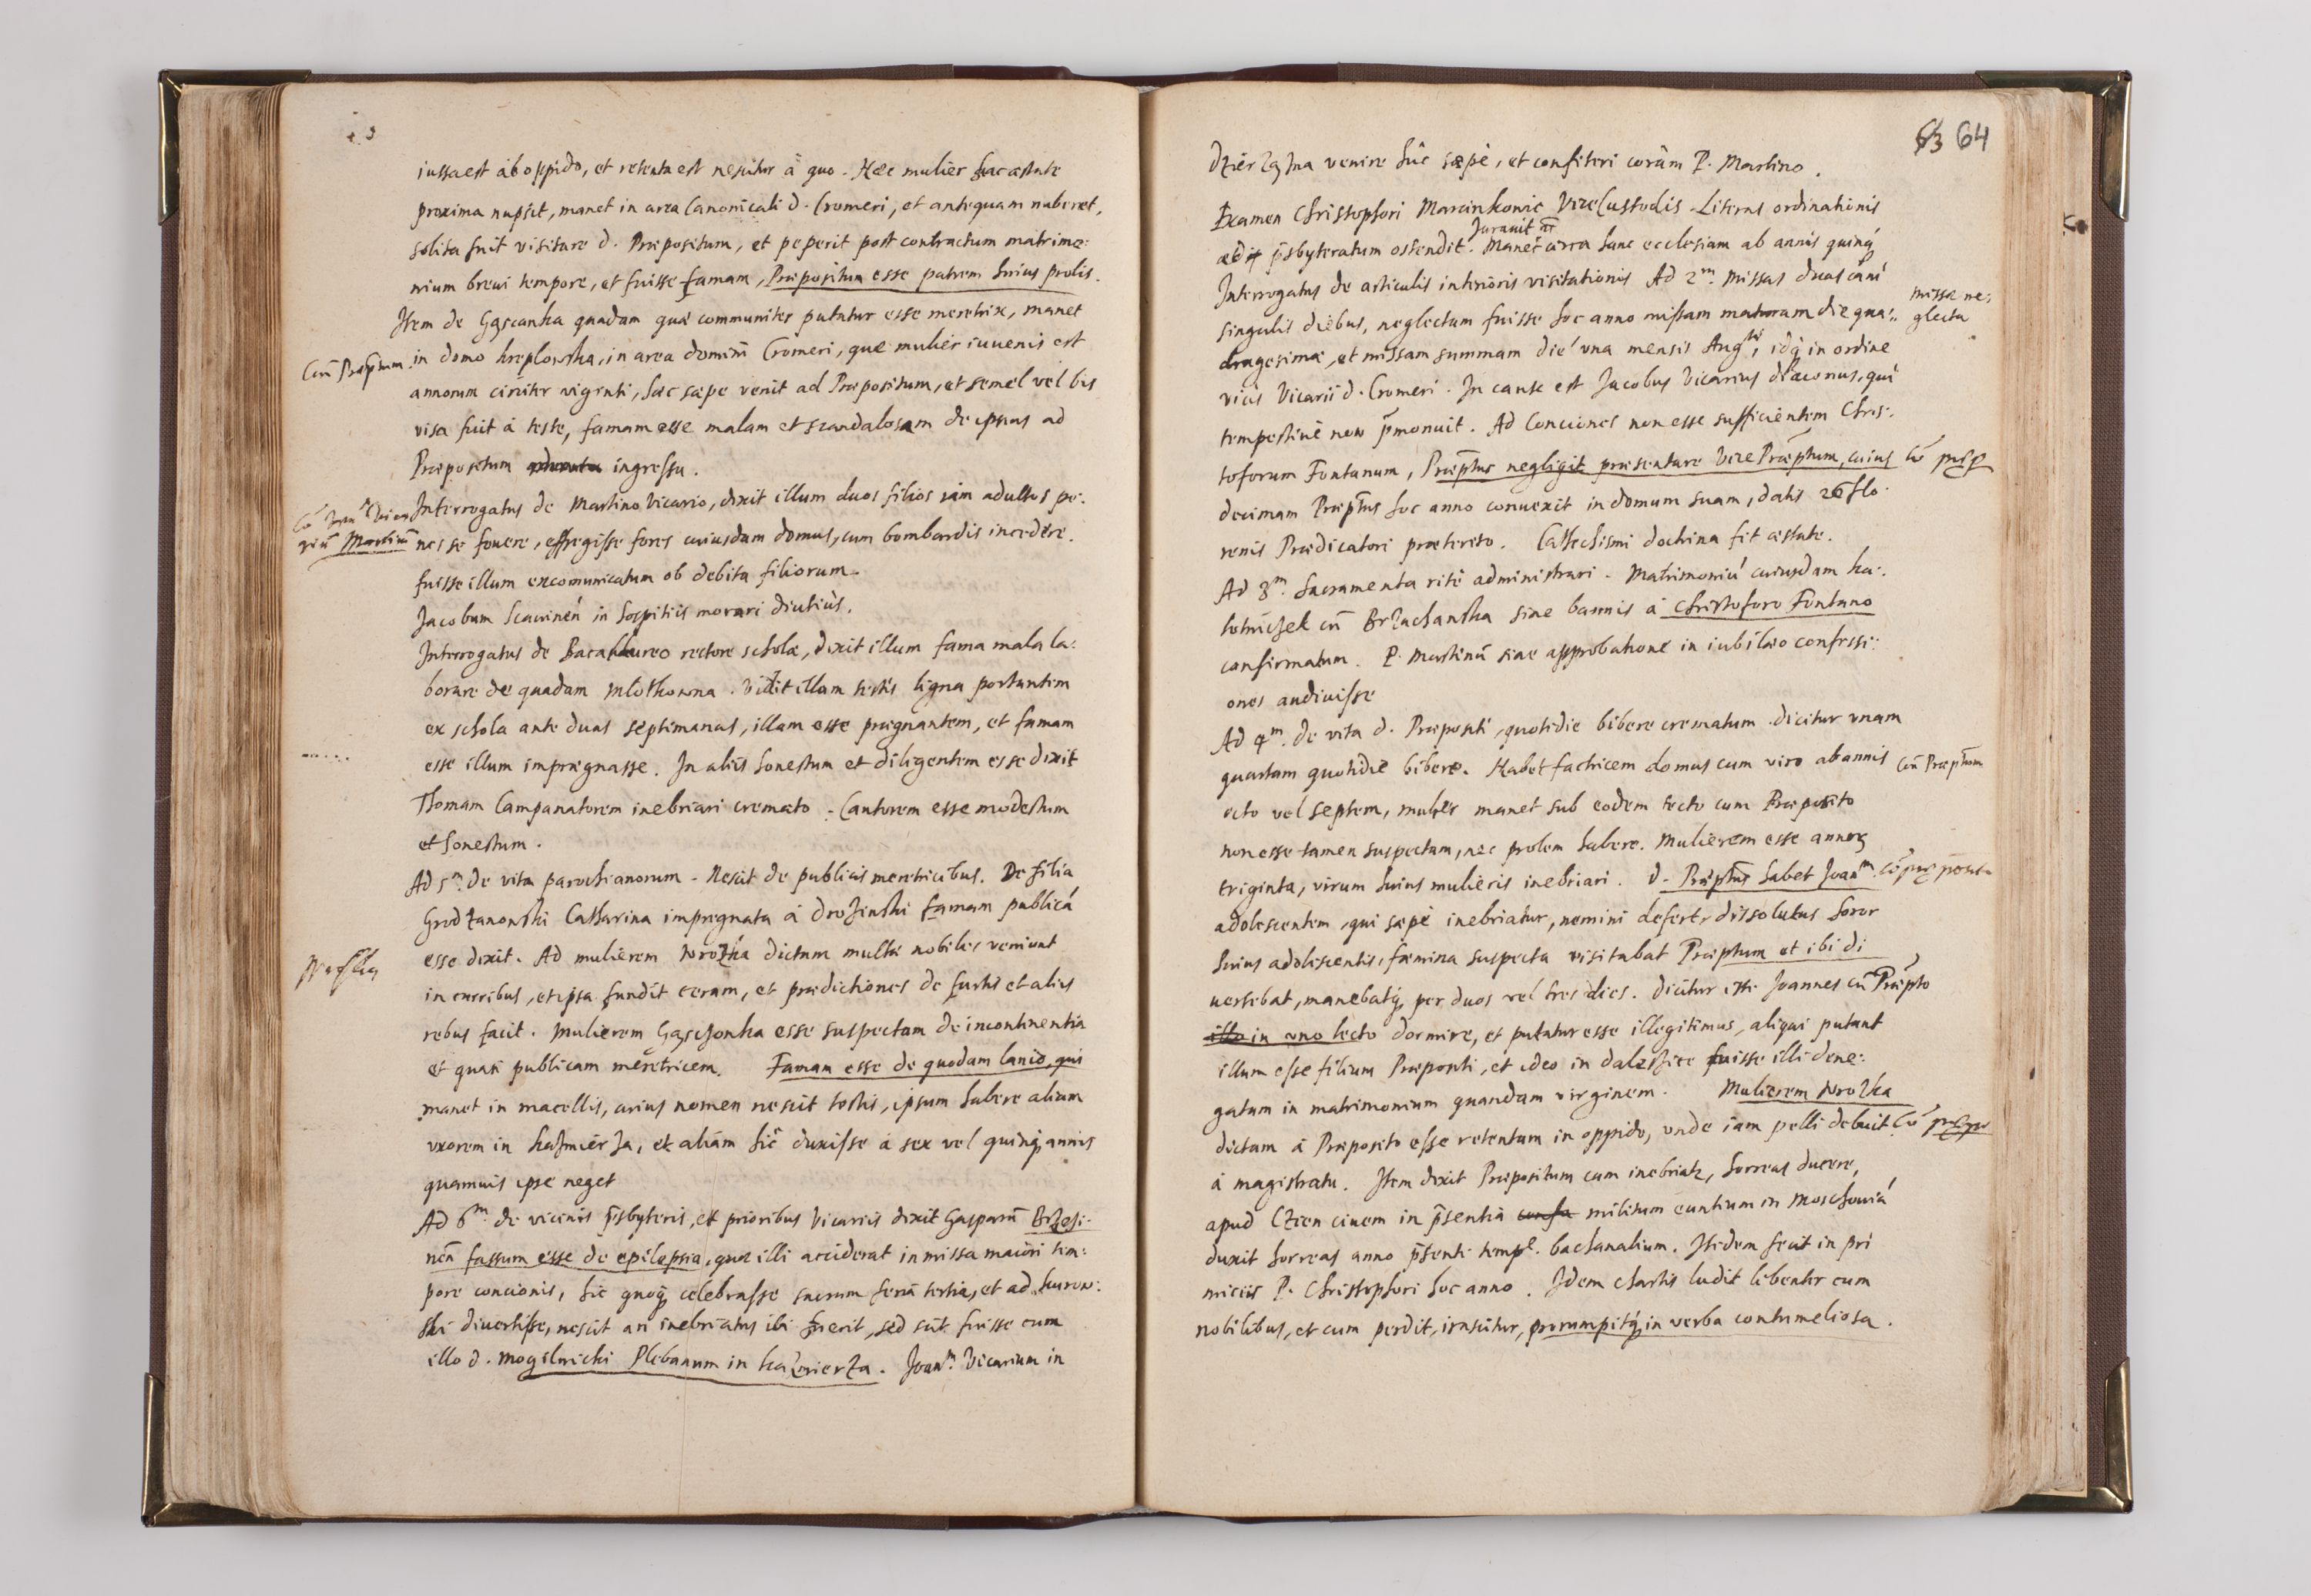 iussa est ab oppido, et retenta est nescitur à quo. Hæc mulier hac æstate
proxima nupsit, manet in area Canonicali d. Cromeri, et antequam nuberet,
solita fuit visitare d. Præpositum, et peperit post contractum matrimo:
nium breui tempore, et fuisse famam, Præpositum esse patrem huius prolis.
Item de Gąscanka quadam quæ communiter putatur esse meretrix, manet
Cũ Præptum. in domo kreplowska, in area domini Cromeri, quæ mulier iuuenis est
annorum circiter viginti, hæc sæpe venit ad Præpositum, et semel vel bis
visa fuit à teste, famam esse malam et scandalosam de ipsius ad
Præpositum ingressu.
Interrogatus de Martino Vicario, dixit illum duos filios iam adultos pe:
Martinũ
nes se fouere, effregisse fores cuiusdam domus, cum bombardis incedere.
fuisse illum excomunicatum ob debita filiorum.
Jacobum Scawinen in hospitiis morari diutius.
Interrogatus de Bacalaureo rectore scholæ, dixit illum fama mala la:
borare de quadam Mlotkowna. Vidit illam testis ligna portantem
ex schola ante duas septimanas, illam esse prægnantem, et famam
esse illum imprægnasse. In aliis honestum et diligentem esse dixit
Thomam Campanatorem inebriari cremato. Cantorem esse modestum
et honestum.
Ad 5m. de vita parochianorum. Nescit de publicis meretricibus. De filia
Grodzanowski Catharina imprægnata à drozinski famam publicã
esse dixit. Ad mulierem wrozka dictam multi nobiles veniunt
in curribus, et ipsa fundit ceram, et prædictiones de furtis et aliis
rebus facit. Mulierem Gąschonka esse suspectam de incontinentia
et quasi publicam meretricem. Famam esse de quodam lanio, qui
manet in macellis, cuius nomen nescit testis, ipsum habere aliam
vxorem in kazmierza, et aliam hic duxisse à sex vel quinq annis
quamuis ipse neget
Ad 6m de vicinis p̃sbyteris, et prioribus Vicariis dixit Gasparũ Brzesi:
neñ fassum esse de epilepsia, quæ illi acciderat in missa maiori tem:
pore concionis, hic quoq celebrasse sacrum feria tertia, et ad kurow:
ski diuertisse, nescit an inebriatus ibi fuerit, sed scit fuisse cum
illo d. Mogilnicki Plebanum in kazmierza. Joanm. Vicarium in
63 64
dzierzązna venire huc sæpè, et confiteri coràm P. Martino.
Examen Christophori Marcinkowic ViceCustodis. Literas ordinationis
Jurauit
ad p̃sbyteratum ostendit. Manet circa hanc ecclesiam ab annis quinq
Interrogatus de articulis interioris visitationis Ad 2m. Missas duas cani
singulis diebus, neglectam fuisse hoc anno missam maturam die qua:
missa ne:
glecta
dragesimæ, et missam summam die vna mensis Augti, idq in ordine
vicis Vicarii d. Cromeri. In causa est Jacobus Vicarius diaconus, qui
tempestiuè non p̃monuit. Ad Conciones non esse sufficientem Chris:
toforum Fontanum, Præptus negligit præsentare VicePræptum, cuius
decimam Præptus hoc anno conuexit in domum suam, datis 26 flo
renis Prædicatori præterito. Catechismi doctrina fit æstate.
Ad 3m. Sacramenta ritè administrari. Matrimoniũ cuiusdam ka:
lotniczek cũ Brzuchanska sine bannis à Christoforo Fontano
confirmatum. P. Martinũ sine approbatione in iubilæo confessi:
ones audiuisse
Ad 4m. De vita d. Præpositi, quotidie bibere crematum. dicitur vnam
quartam quotidie bibere. Habet factricem domus cum viro ab annis Cũ Præptum
octo vel septem, mulier manet sub eodem tecto cum Præposito
non esse tamen suspectam, nec prolem habere. Mulierem esse annorum
triginta, virum huius mulieris inebriari. d. Præptus habet Joanm.
adolescentem, qui sæpè inebriatur, nemini defert, dissolutus soror
huius adolescentis, fæmina suspecta visitabat Præptum et ibi di
uertebat, manebatq per duos vel tres dies. Dicitur iste Joannes cũ Præpto
illo in vno lecto dormire, et putatur esse illegitimus, aliqui putant
illum esse filium Præpositi, et ideo in dalessice fuisse illi dene:
gatam in matrimonium quandam virginem. Mulierem wrozka
dictam à Præposito esse retentam in oppido, vnde iam pelli debuit
à magistratu. Item dixit Præpositum cum inebriatur, horreas ducere,
apud Czien ciuem in p̃sentia militum euntium in Moschouiã
duxit horreas anno p̃senti temp̃e bachanalium. Itidem fecit in pri
miciis P. Christophori hoc anno. Idem chartis ludit libenter cum
nobilibus, et cum perdit, irascitur, prorumpitq in verba contumeliosa.